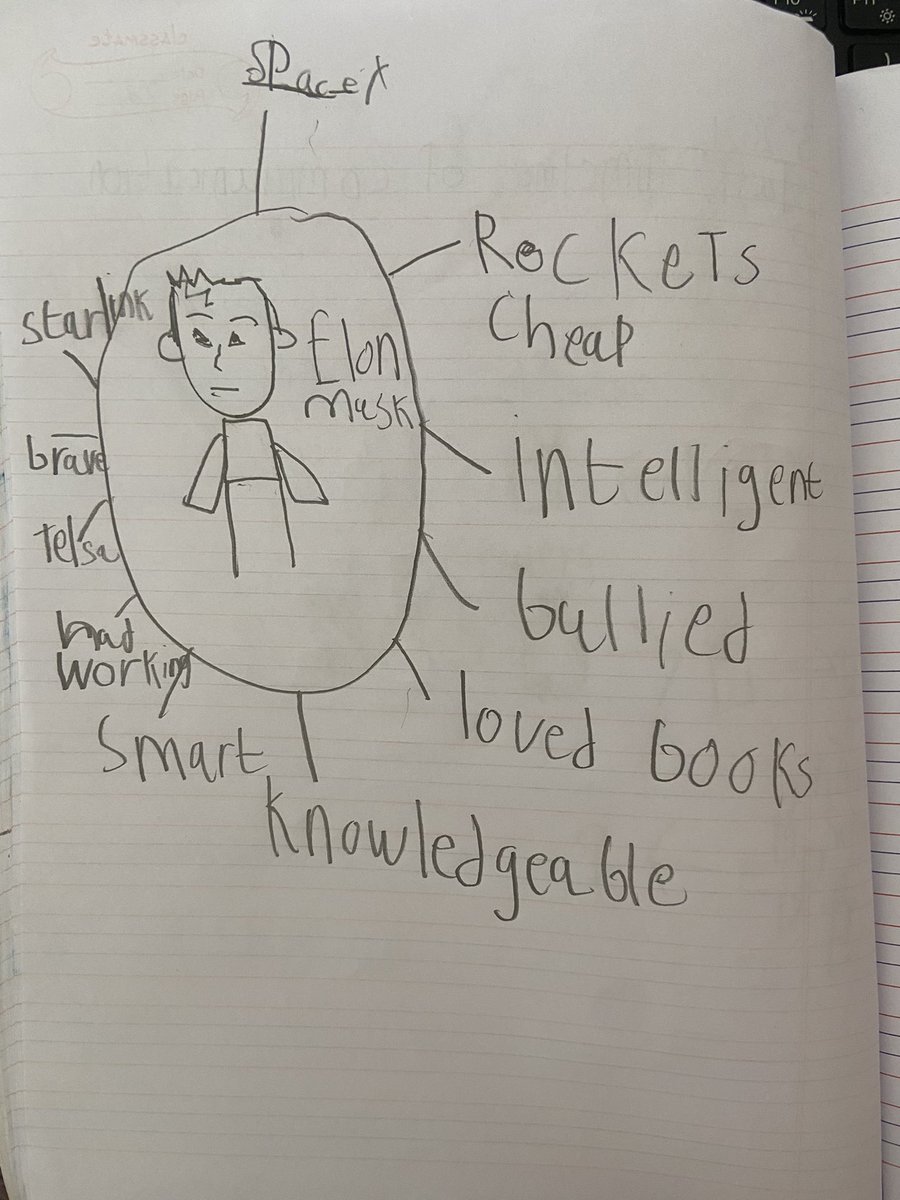 SPaceX
Rockets
Cheap
starlink
Elon
musk
brave
intelligent
telsa
bullied
had
working
loved books
Smart
knowledgeable